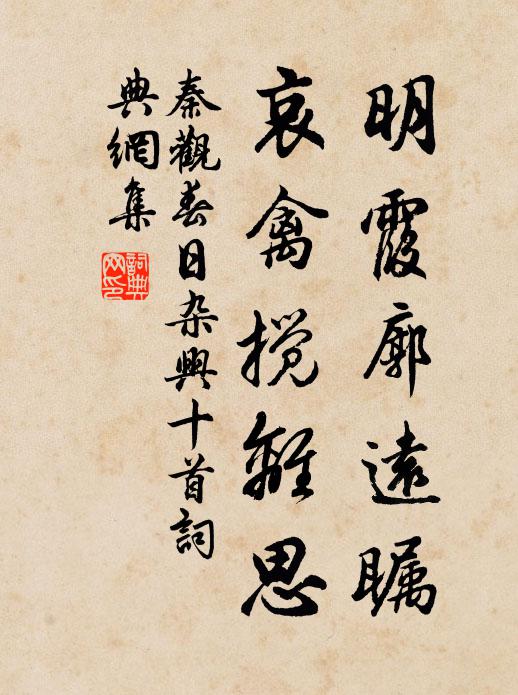 明霞廓遠瞩
哀禽搅離思
秦觀春日杂興十首詞
典網集
詞典网印